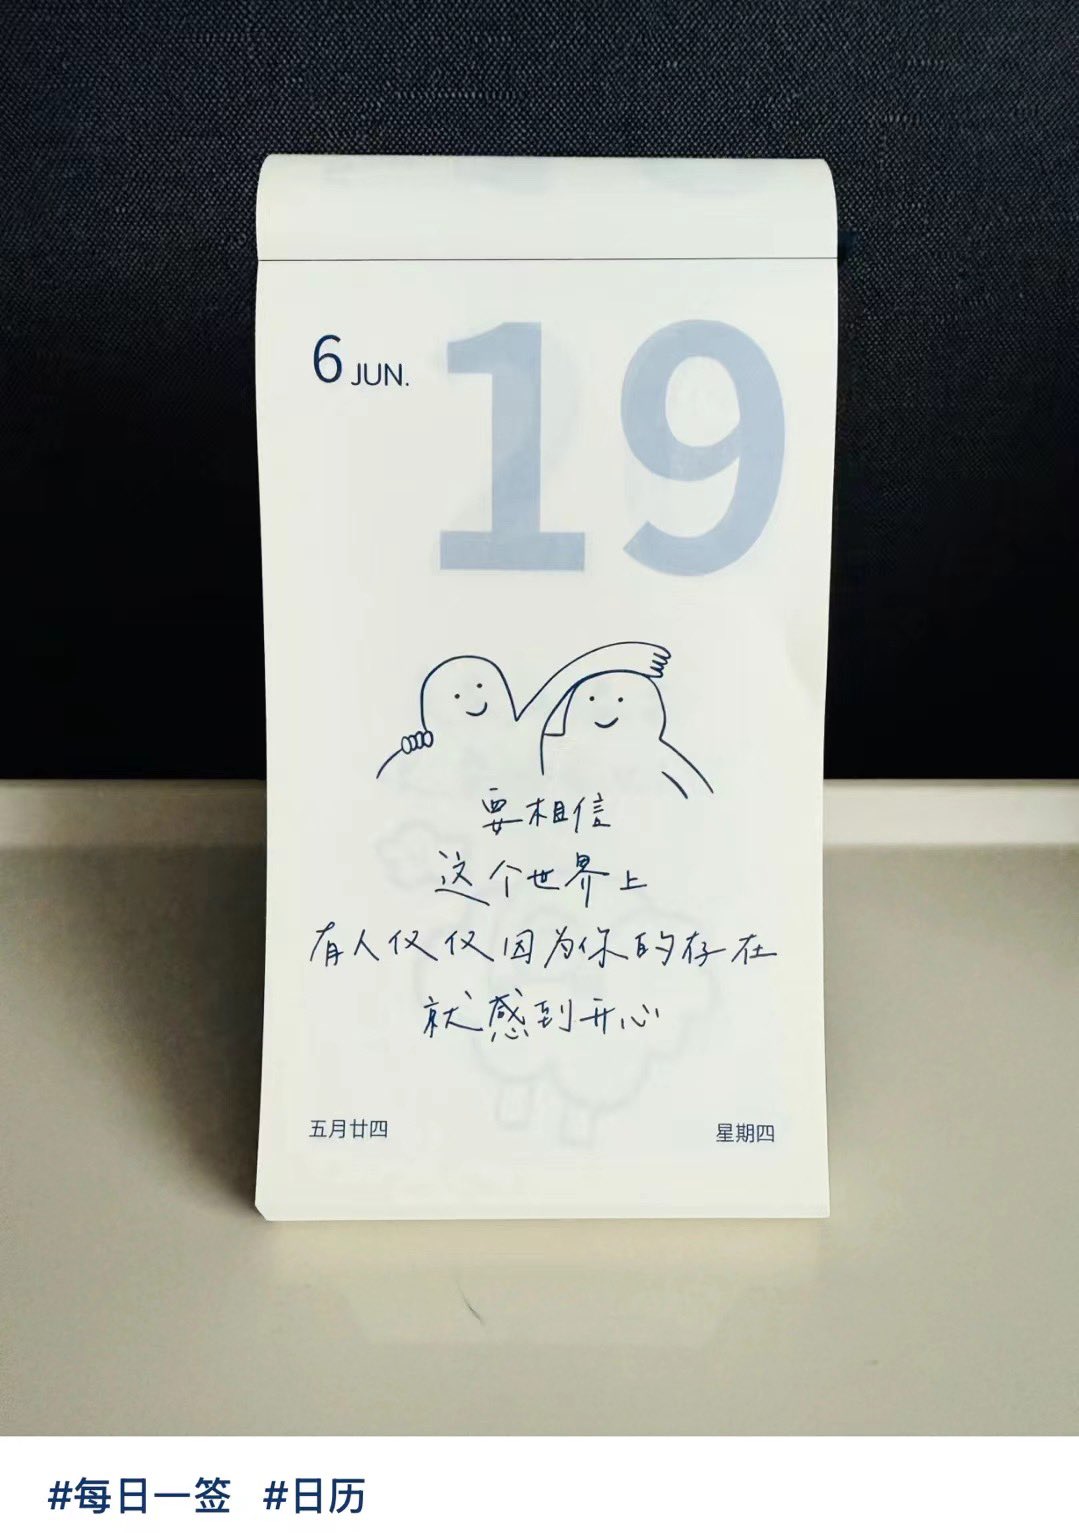 6 JUN. 19
要相信
这个世界上
有人仅仅因为你的存在
就感到开心
五月廿四 星期四
#每日一签 #日历